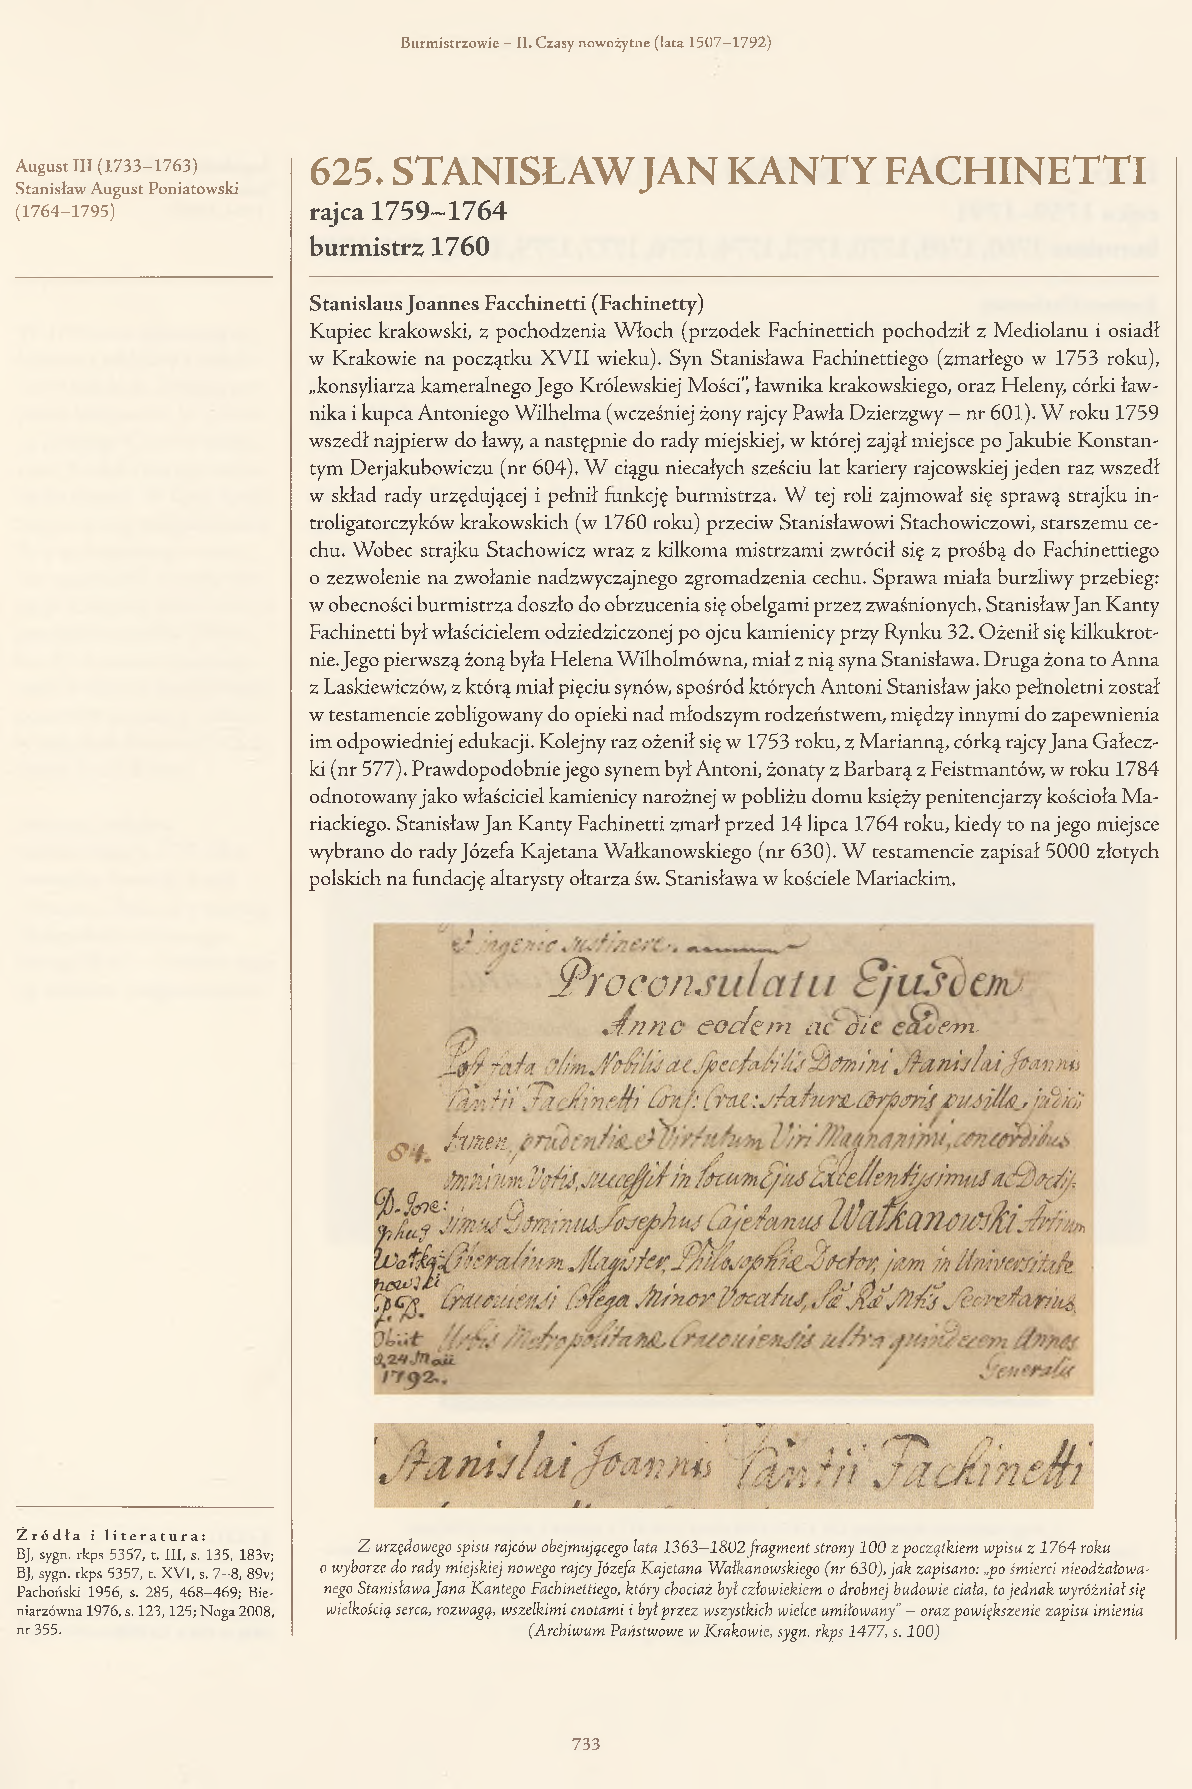 Burmistrzowie – II. Czasy nowożytne (lata 1507–1792)
August III (1733–1763)
Stanisław August Poniatowski
(1764–1795)
625. STANISŁAW JAN KANTY FACHINETTI
rajca 1759–1764
burmistrz 1760
Stanislaus Joannes Facchinetti (Fachinetty)
Kupiec krakowski, z pochodzenia Włoch (przodek Fachinettich pochodził z Mediolanu i osiadł
w Krakowie na początku XVII wieku). Syn Stanisława Fachinettiego (zmarłego w 1753 roku),
„konsyliarza kameralnego Jego Królewskiej Mości", ławnika krakowskiego, oraz Heleny, córki ław-
nika i kupca Antoniego Wilhelma (wcześniej żony rajcy Pawła Dzierzgwy – nr 601). W roku 1759
wszedł najpierw do ławy, a następnie do rady miejskiej, w której zajął miejsce po Jakubie Konstan-
tym Derjakubowiczu (nr 604). W ciągu niecałych sześciu lat kariery rajcowskiej jeden raz wszedł
w skład rady urzędującej i pełnił funkcję burmistrza. W tej roli zajmował się sprawą strajku in-
troligatorczyków krakowskich (w 1760 roku) przeciw Stanisławowi Stachowiczowi, starszemu ce-
chu. Wobec strajku Stachowicz wraz z kilkoma mistrzami zwrócił się z prośbą do Fachinettiego
o zezwolenie na zwołanie nadzwyczajnego zgromadzenia cechu. Sprawa miała burzliwy przebieg:
w obecności burmistrza doszło do obrzucenia się obelgami przez zwaśnionych. Stanisław Jan Kanty
Fachinetti był właścicielem odziedziczonej po ojcu kamienicy przy Rynku 32. Ożenił się kilkukrot-
nie. Jego pierwszą żoną była Helena Wilholmówna, miał z nią syna Stanisława. Druga żona to Anna
z Laskiewiczów, z którą miał pięciu synów, spośród których Antoni Stanisław jako pełnoletni został
w testamencie zobligowany do opieki nad młodszym rodzeństwem, między innymi do zapewnienia
im odpowiedniej edukacji. Kolejny raz ożenił się w 1753 roku, z Marianną, córką rajcy Jana Gałecz-
ki (nr 577). Prawdopodobnie jego synem był Antoni, żonaty z Barbarą z Feistmantów, w roku 1784
odnotowany jako właściciel kamienicy narożnej w pobliżu domu księży penitencjarzy kościoła Ma-
riackiego. Stanisław Jan Kanty Fachinetti zmarł przed 14 lipca 1764 roku, kiedy to na jego miejsce
wybrano do rady Józefa Kajetana Wałkanowskiego (nr 630). W testamencie zapisał 5000 złotych
polskich na fundację altarysty ołtarza św. Stanisława w kościele Mariackim.
et ingenio sustinere.
Proconsulatu Ejusdem
Anno eodem ac die eadem
Post fata olim Nobilis ac Spectabilis Domini Stanislai Joannis
Cantii Fachinetti Cons: Crac: staturæ corporis pusillæ, judicii
84. tamen, prudentiæ et Virtutum Viri Magnanimi, concordibus
omnium Votis, successit in locum Ejus Excellentissimus ac Doctis-
simus Dominus Josephus Cajetanus Wałkanowski Artium
Liberalium Magister, Philosophiæ Doctor, jam in Universitate
Cracoviensi Colega Minor Vocatus, Sæ Ræ Mtis Secretarius
Urbis Metropolitanæ Cracoviensis ultra quindecem Annos
Generalis
D. Jose:
phus
Wałka:
nowski
Obiit
d. 24 Maii
1792.
Stanislai Joannis Cantii Fachinetti
Z urzędowego spisu rajców obejmującego lata 1363–1802 fragment strony 100 z początkiem wpisu z 1764 roku
o wyborze do rady miejskiej nowego rajcy Józefa Kajetana Wałkanowskiego (nr 630), jak zapisano: „po śmierci nieodżałowa-
nego Stanisława Jana Kantego Fachinettiego, który chociaż był człowiekiem o drobnej budowie ciała, to jednak wyróżniał się
wielkością serca, rozwagą, wszelkimi cnotami i był przez wszystkich wielce umiłowany" – oraz powiększenie zapisu imienia
(Archiwum Państwowe w Krakowie, sygn. rkps 1477, s. 100)
Źródła i literatura:
BJ, sygn. rkps 5357, t. III, s. 135, 183v;
BJ, sygn. rkps 5357, t. XVI, s. 7–8, 89v;
Pachoński 1956, s. 285, 468–469; Bie-
niarzówna 1976, s. 123, 125; Noga 2008,
nr 355.
733